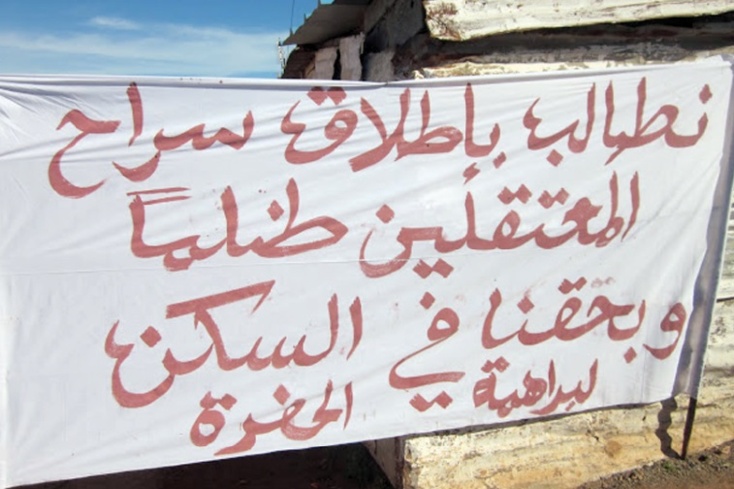 نطالب بإطلاق سراح
المعتقلين ظلماً
وبحقنا في السكن
لبراهمة الحفرة